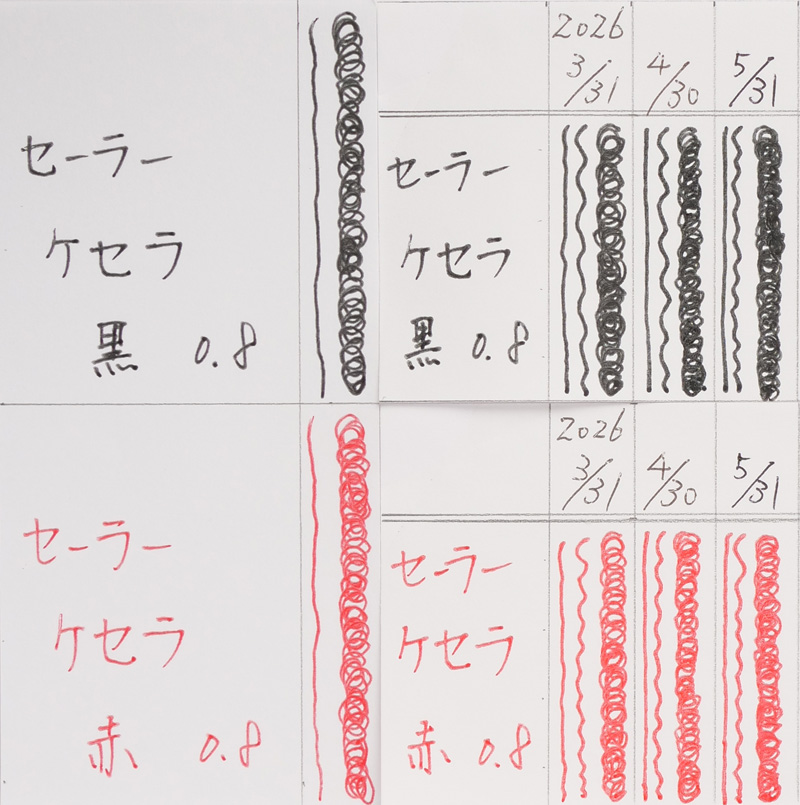 セーラー
ケセラ
黒 0.8
2026
3/31 4/30 5/31
セーラー
ケセラ
黒 0.8
セーラー
ケセラ
赤 0.8
2026
3/31 4/30 5/31
セーラー
ケセラ
赤 0.8